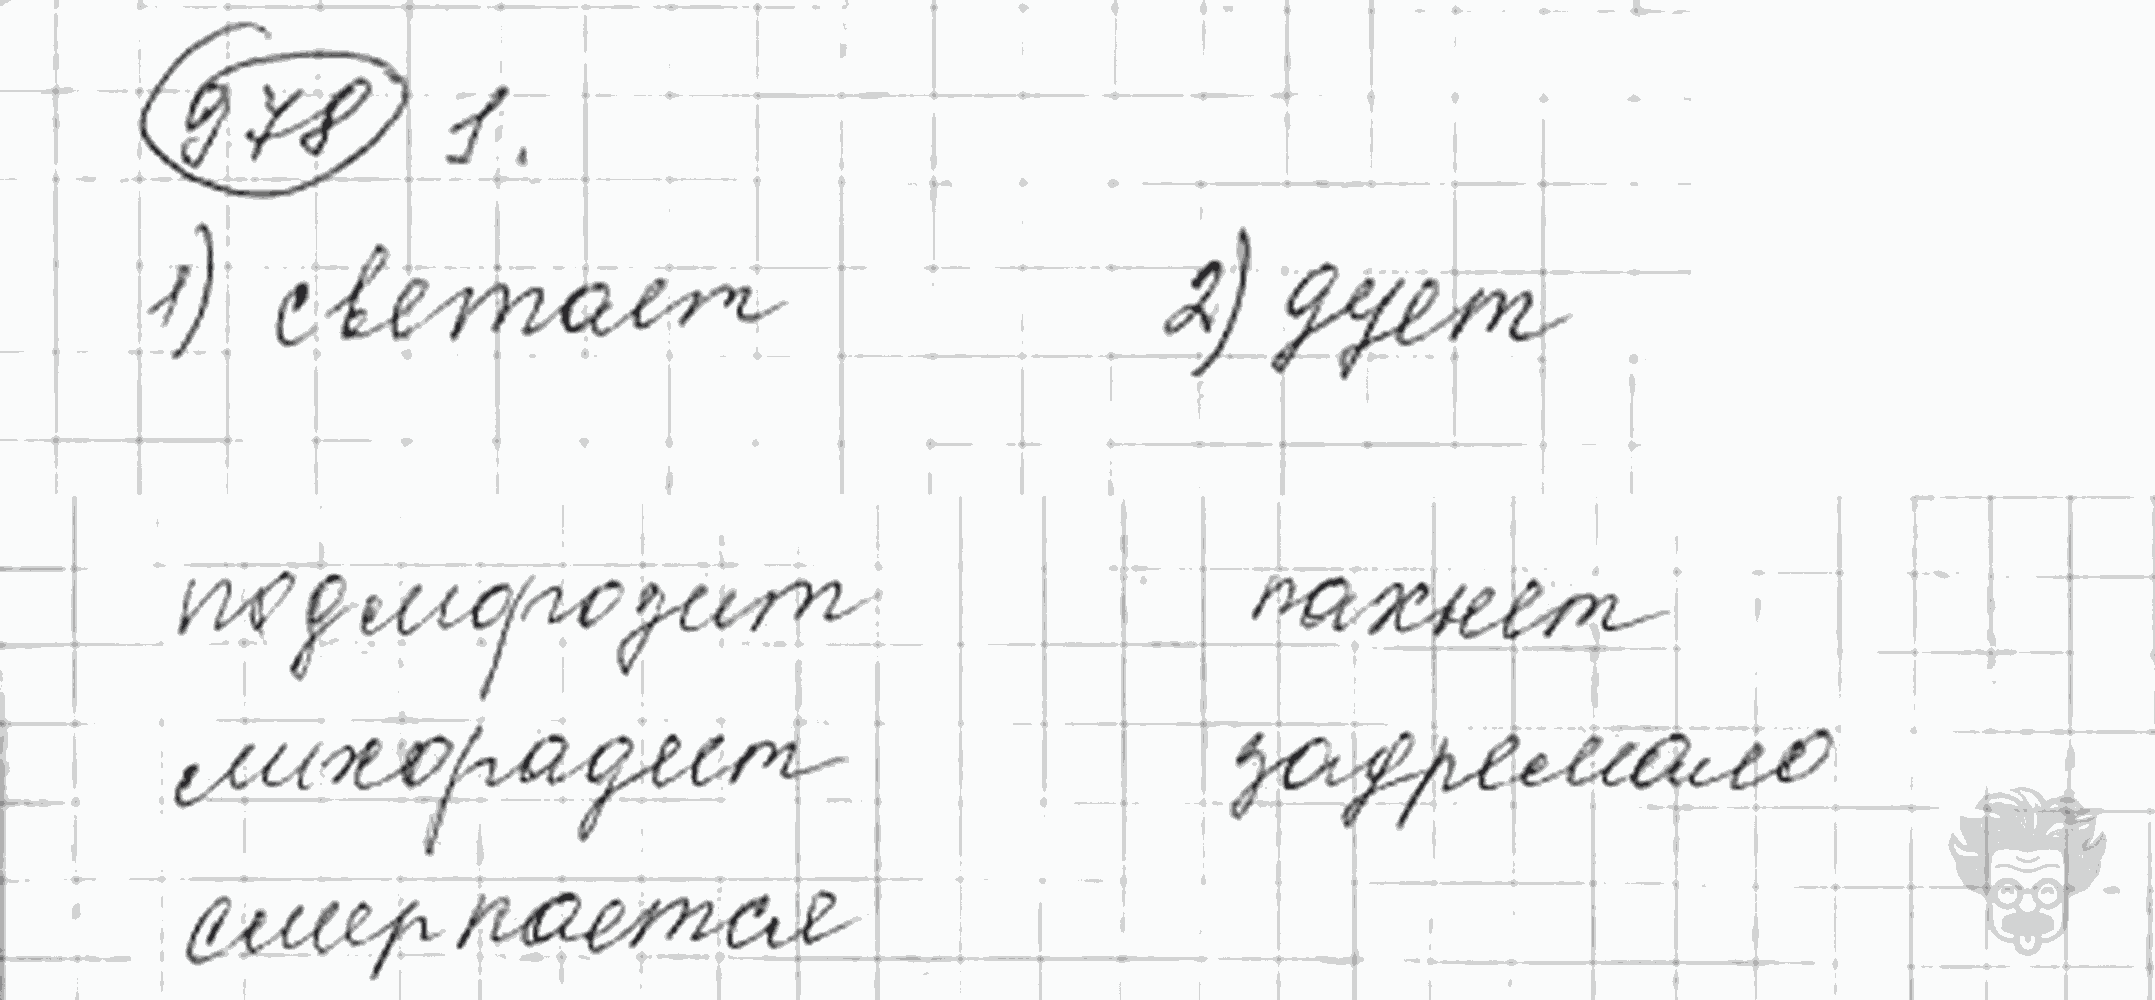 978 1.
1) светает 2) дует
подморозит пахнет
лихорадит задремало
смеркается